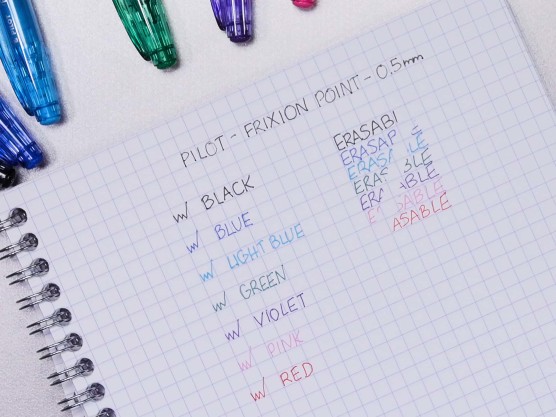 PILOT - FRIXION POINT - 0.5mm
w/ BLACK
w/ BLUE
w/ LIGHT BLUE
w/ GREEN
w/ VIOLET
w/ PINK
w/ RED
ERASABL
ERASAB E
ERASA LE
ERA BLE
ERA ABLE
E SABLE
ASABLE